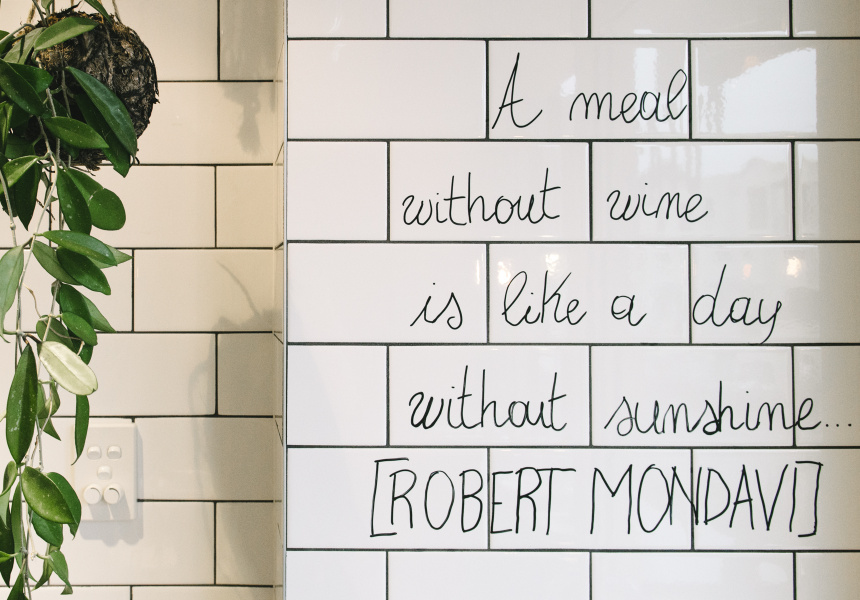 A meal
without wine
is like a day
without sunshine...
[ROBERT MONDAVI]